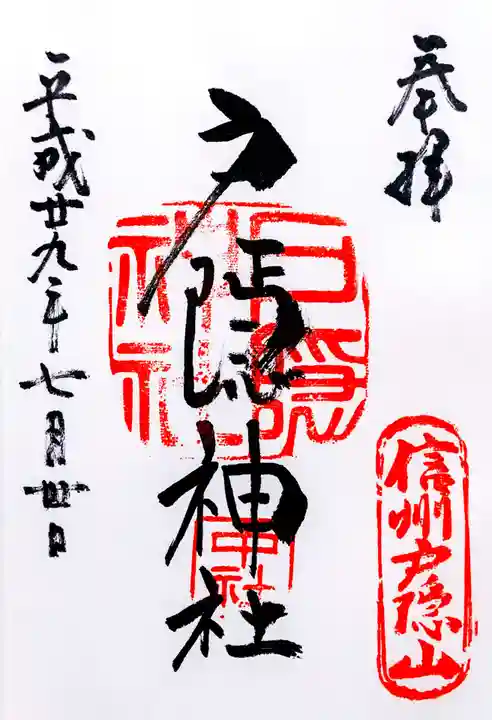 奉拝
信州戸隠山
戸隠神社
中社
平成廿九年七月丗日